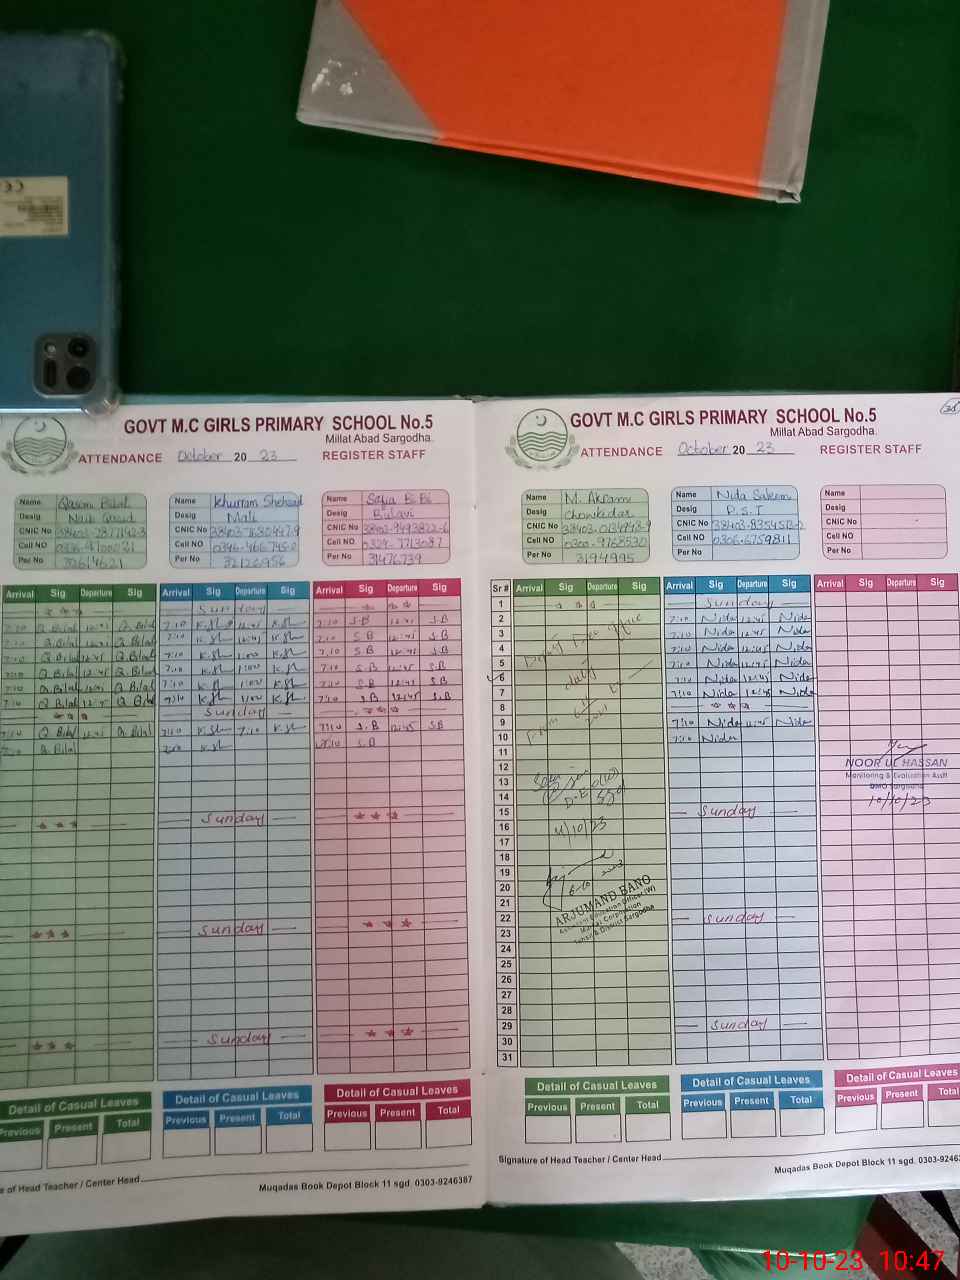 GOVT M.C GIRLS PRIMARY SCHOOL No.5
Millat Abad Sargodha.
ATTENDANCE October 20 23 REGISTER STAFF
Name Qasam Bilal
Desig Naib Qasid
CNIC No
Cell NO
Per No
Name Khurram Shehzad
Desig Mali
CNIC No
Cell NO 0346-4667450
Per No 32126956
Name Safia Bi Bi
Desig Bulavi
CNIC No 38403-9493822-6
Cell NO 0329-7713087
Per No 31476739
Arrival Sig Departure Sig Arrival Sig Departure Sig Arrival Sig Departure Sig
Sunday
7:10 Q. Bilal 12:45 Q. Bilal 7:10 K.Sh 12:45 K.Sh 7:10 S.B 12:45 S.B
7:10 Q. Bilal 12:45 Q. Bilal 7:10 K.Sh 12:45 K.Sh 7:10 S.B 12:45 S.B
7:10 Q. Bilal 12:45 Q. Bilal 7:10 K.Sh K.Sh 7:10 S.B 12:45 S.B
7:10 Q. Bilal 12:45 Q. Bilal 7:10 K.Sh K.Sh 7:10 S.B 12:45 S.B
7:10 Q. Bilal Q. Bilal 7:10 K.Sh K.Sh 7:10 S.B 12:45 S.B
7:10 Q. Bilal 12:45 Q. Bilal 7:10 K.Sh K.Sh 7:10 S.B 12:45 S.B
Sunday
7:10 Q. Bilal 12:45 Q. Bilal 7:10 K.Sh 7:10 K.Sh 7:10 S.B 12:45 S.B
7:10 Q. Bilal 7:10 K.Sh 7:10 S.B
Sunday
Sunday
Sunday
Detail of Casual Leaves Detail of Casual Leaves Detail of Casual Leaves
Previous Present Total Previous Present Total Previous Present Total
e of Head Teacher / Center Head
Muqadas Book Depot Block 11 sgd. 0303-9246387
GOVT M.C GIRLS PRIMARY SCHOOL No.5
Millat Abad Sargodha.
ATTENDANCE October 20 23 REGISTER STAFF
Name M. Akram
Desig Chowkidar
CNIC No
Cell NO 0300-9768530
Per No 3194995
Name Nida Saleem
Desig P.S.T
CNIC No
Cell NO 0306-6759811
Per No
Name
Desig
CNIC No
Cell NO
Per No
Sr # Arrival Sig Departure Sig Arrival Sig Departure Sig Arrival Sig Departure Sig
1 Sunday
2 7:10 Nida 12:45 Nida
3 7:10 Nida 12:45 Nida
4 7:10 Nida 12:45 Nida
5 7:10 Nida 12:45 Nida
6 7:10 Nida 12:45 Nida
7 7:10 Nida 12:45 Nida
8
9 7:10 Nida 12:45 Nida
10 7:10 Nida
11
12
13
14
15 Sunday
16
17
18
19
20
21
22 Sunday
23
24
25
26
27
28
29 Sunday
30
31
duty
From
D.E.O(W)
Sgd
4/10/23
ARJUMAND BANO
Assistant Education Officer (W)
Municipal Corporation
Tehsil & District Sargodha
NOOR UL HASSAN
Monitoring & Evaluation Asstt
DMO Sargodha
10/10/23
Detail of Casual Leaves Detail of Casual Leaves Detail of Casual Leaves
Previous Present Total Previous Present Total Previous Present Total
Signature of Head Teacher / Center Head
Muqadas Book Depot Block 11 sgd. 0303-9246
10-10-23 10:47